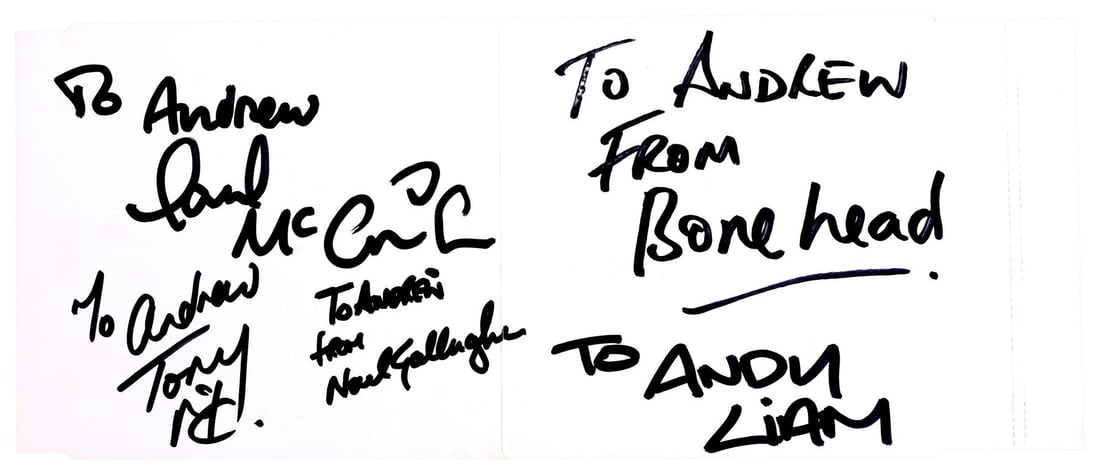 To Andrew
Paul
McG
To Andrew
Tony
Mc.
To ANDREW
from
Noel Gallagher
To ANDREW
FROM
Bonehead.
To ANDY
LiAM